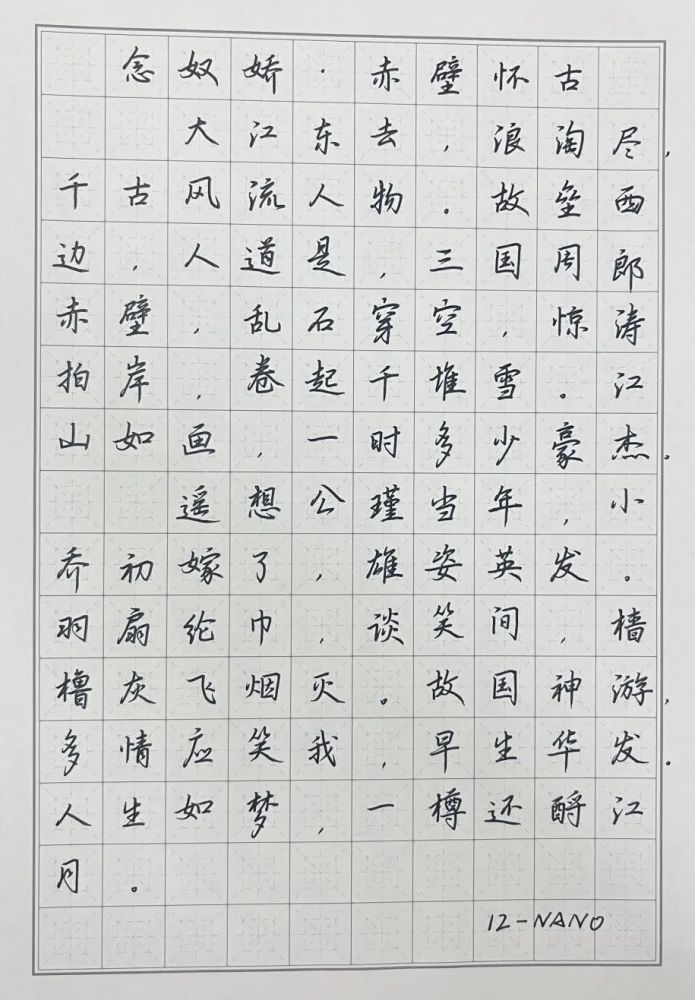 念奴娇·赤壁怀古
大江东去,浪淘尽,
千古风流人物。故垒西
边,人道是,三国周郎
赤壁,乱石穿空,惊涛
拍岸,卷起千堆雪。江
山如画,一时多少豪杰。
遥想公瑾当年,小
乔初嫁了,雄姿英发。
羽扇纶巾,谈笑间,樯
橹灰飞烟灭。故国神游,
多情应笑我,早生华发。
人生如梦,一樽还酹江
月。
12-NANO